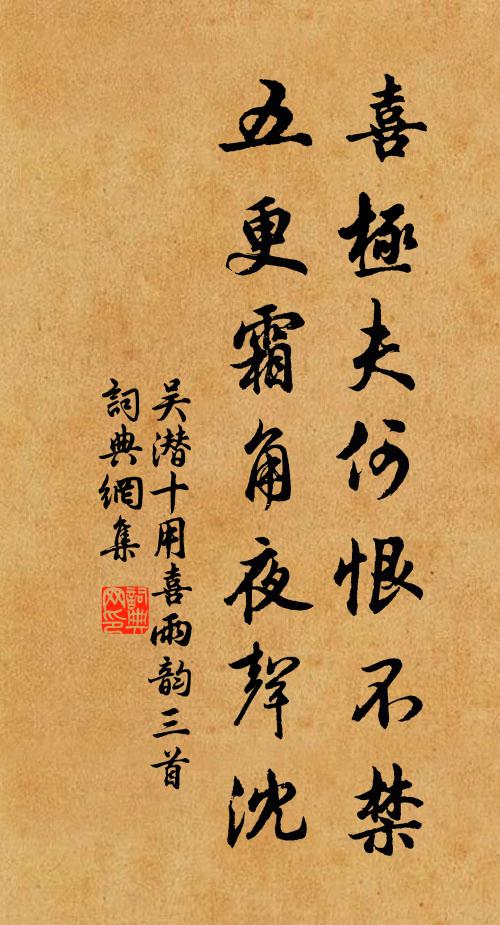 喜極夫何恨不禁
五更霜角夜聲沈
吴潜十用喜雨韵三首
詞典網集
詞典網印